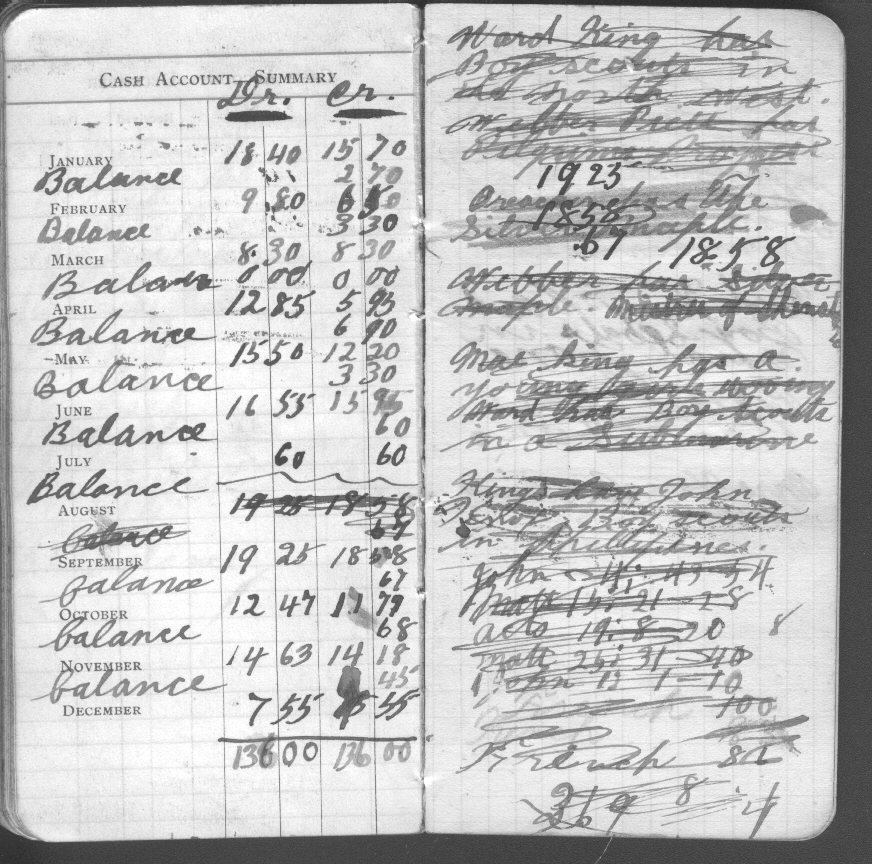 CASH ACCOUNT—SUMMARY
Dr. Cr.
JANUARY 18 40 15 70
Balance 2 70
FEBRUARY 9 80 6 50
Balance 3 30
MARCH 8 30 8 30
Balance 0 00 0 00
APRIL 12 85 5 95
Balance 6 90
MAY 15 50 12 20
Balance 3 30
JUNE 16 55 15 95
Balance 60
JULY 60 60
Balance
AUGUST 19 25 18 58
balance 67
SEPTEMBER 19 25 18 58
balance 67
OCTOBER 12 47 11 79
balance 68
NOVEMBER 14 63 14 18
balance 45
DECEMBER 7 55 55
136 00 136 00
Ward King has
Boy scouts in
the North West.
Webber Press has
Pilgrims
1925
as the
1858
Silver Maple.
.67 18.58
Webber has Silver
maple.
Mae King has a
young
Ward has Boy Scouts
in a Submarine
Kings have John
Boy scouts
in Phillipines.
John 4; 43-54
Matt 15: 21-28
acts 19: 8-20 8
Matt 25: 31-40
1 John 1: 1-10
100
French
8
4